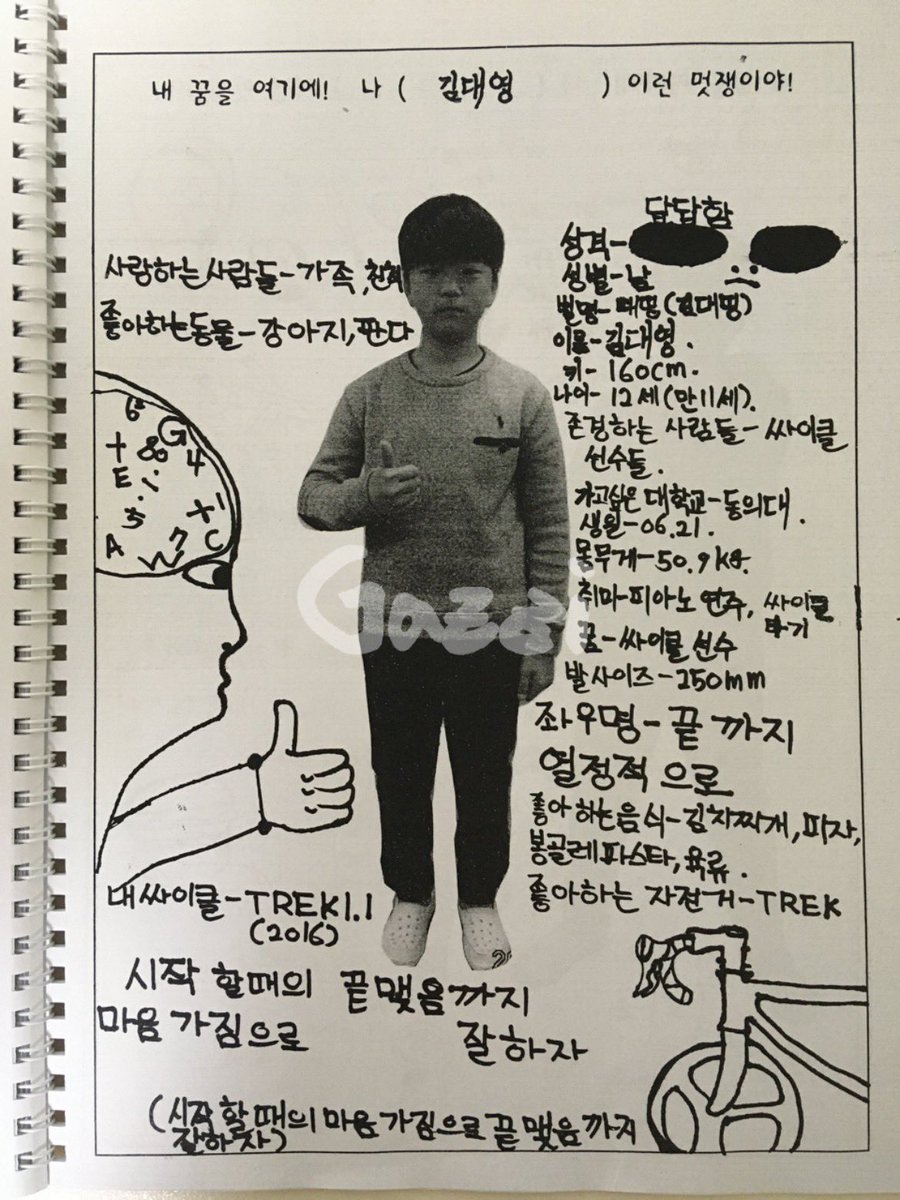 내 꿈을 여기에! 나 ( 김대영 ) 이런 멋쟁이야!
사랑하는 사람들-가족, 친척
좋아하는동물-강아지, 판다
답답함
성격-
성별-남
별명-때띵(김대띵)
이름-김대영.
키-160cm.
나이-12세(만11세).
존경하는 사람들-싸이클
선수들.
가고싶은 대학교-동의대.
생일-06.21.
몸무게-50.9kg.
취미-피아노 연주, 싸이클
타기
꿈-싸이클 선수
발사이즈-250mm
좌우명-끝까지
열정적으로
좋아하는음식-김치찌개, 피자,
봉골레파스타, 육류.
좋아하는 자전거-TREK
6 G
+ 80 4
E ÷
5 + 1
A W 7 C
내싸이클-TREK1.1
(2016)
시작 할때의 끝맺음까지
마음가짐으로 잘하자
(시작할때의 마음가짐으로 끝맺음까지
잘하자)